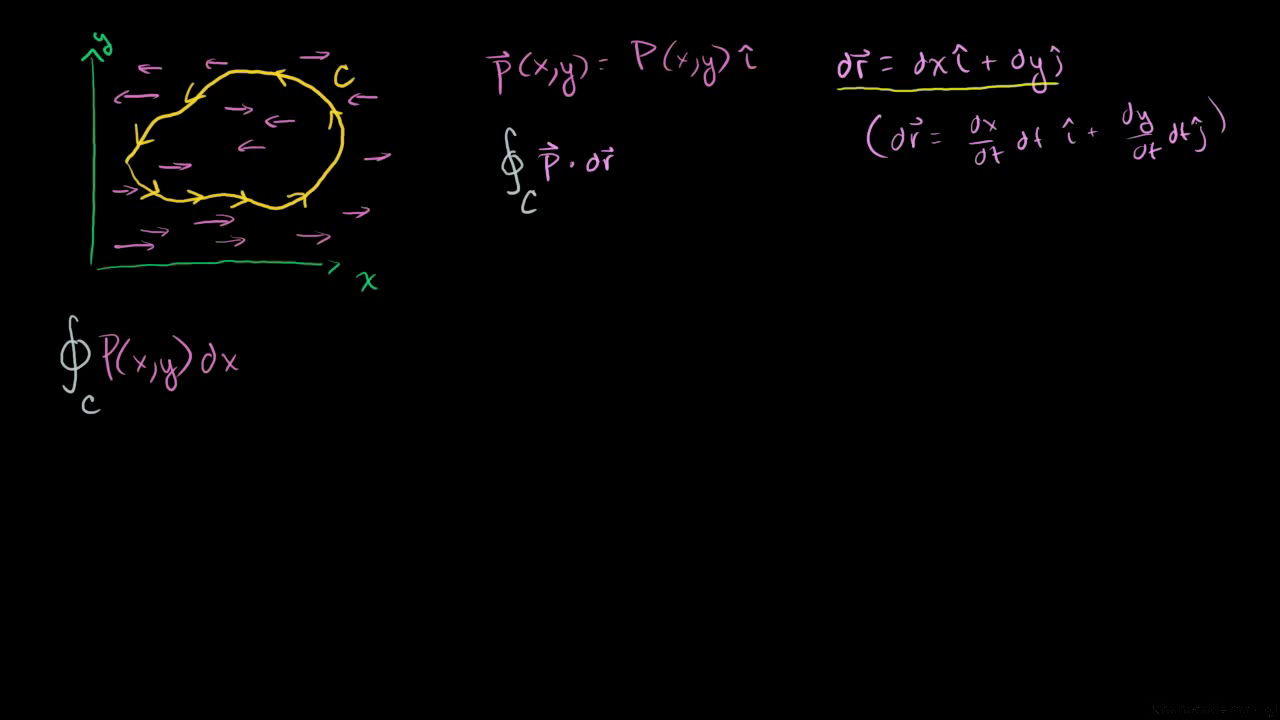 y
C
x
p⃗(x,y) = P(x,y) î
∮_C p⃗ · dr⃗
dr⃗ = dx î + dy ĵ
(dr⃗ = dx/dt dt î + dy/dt dt ĵ)
∮_C P(x,y) dx